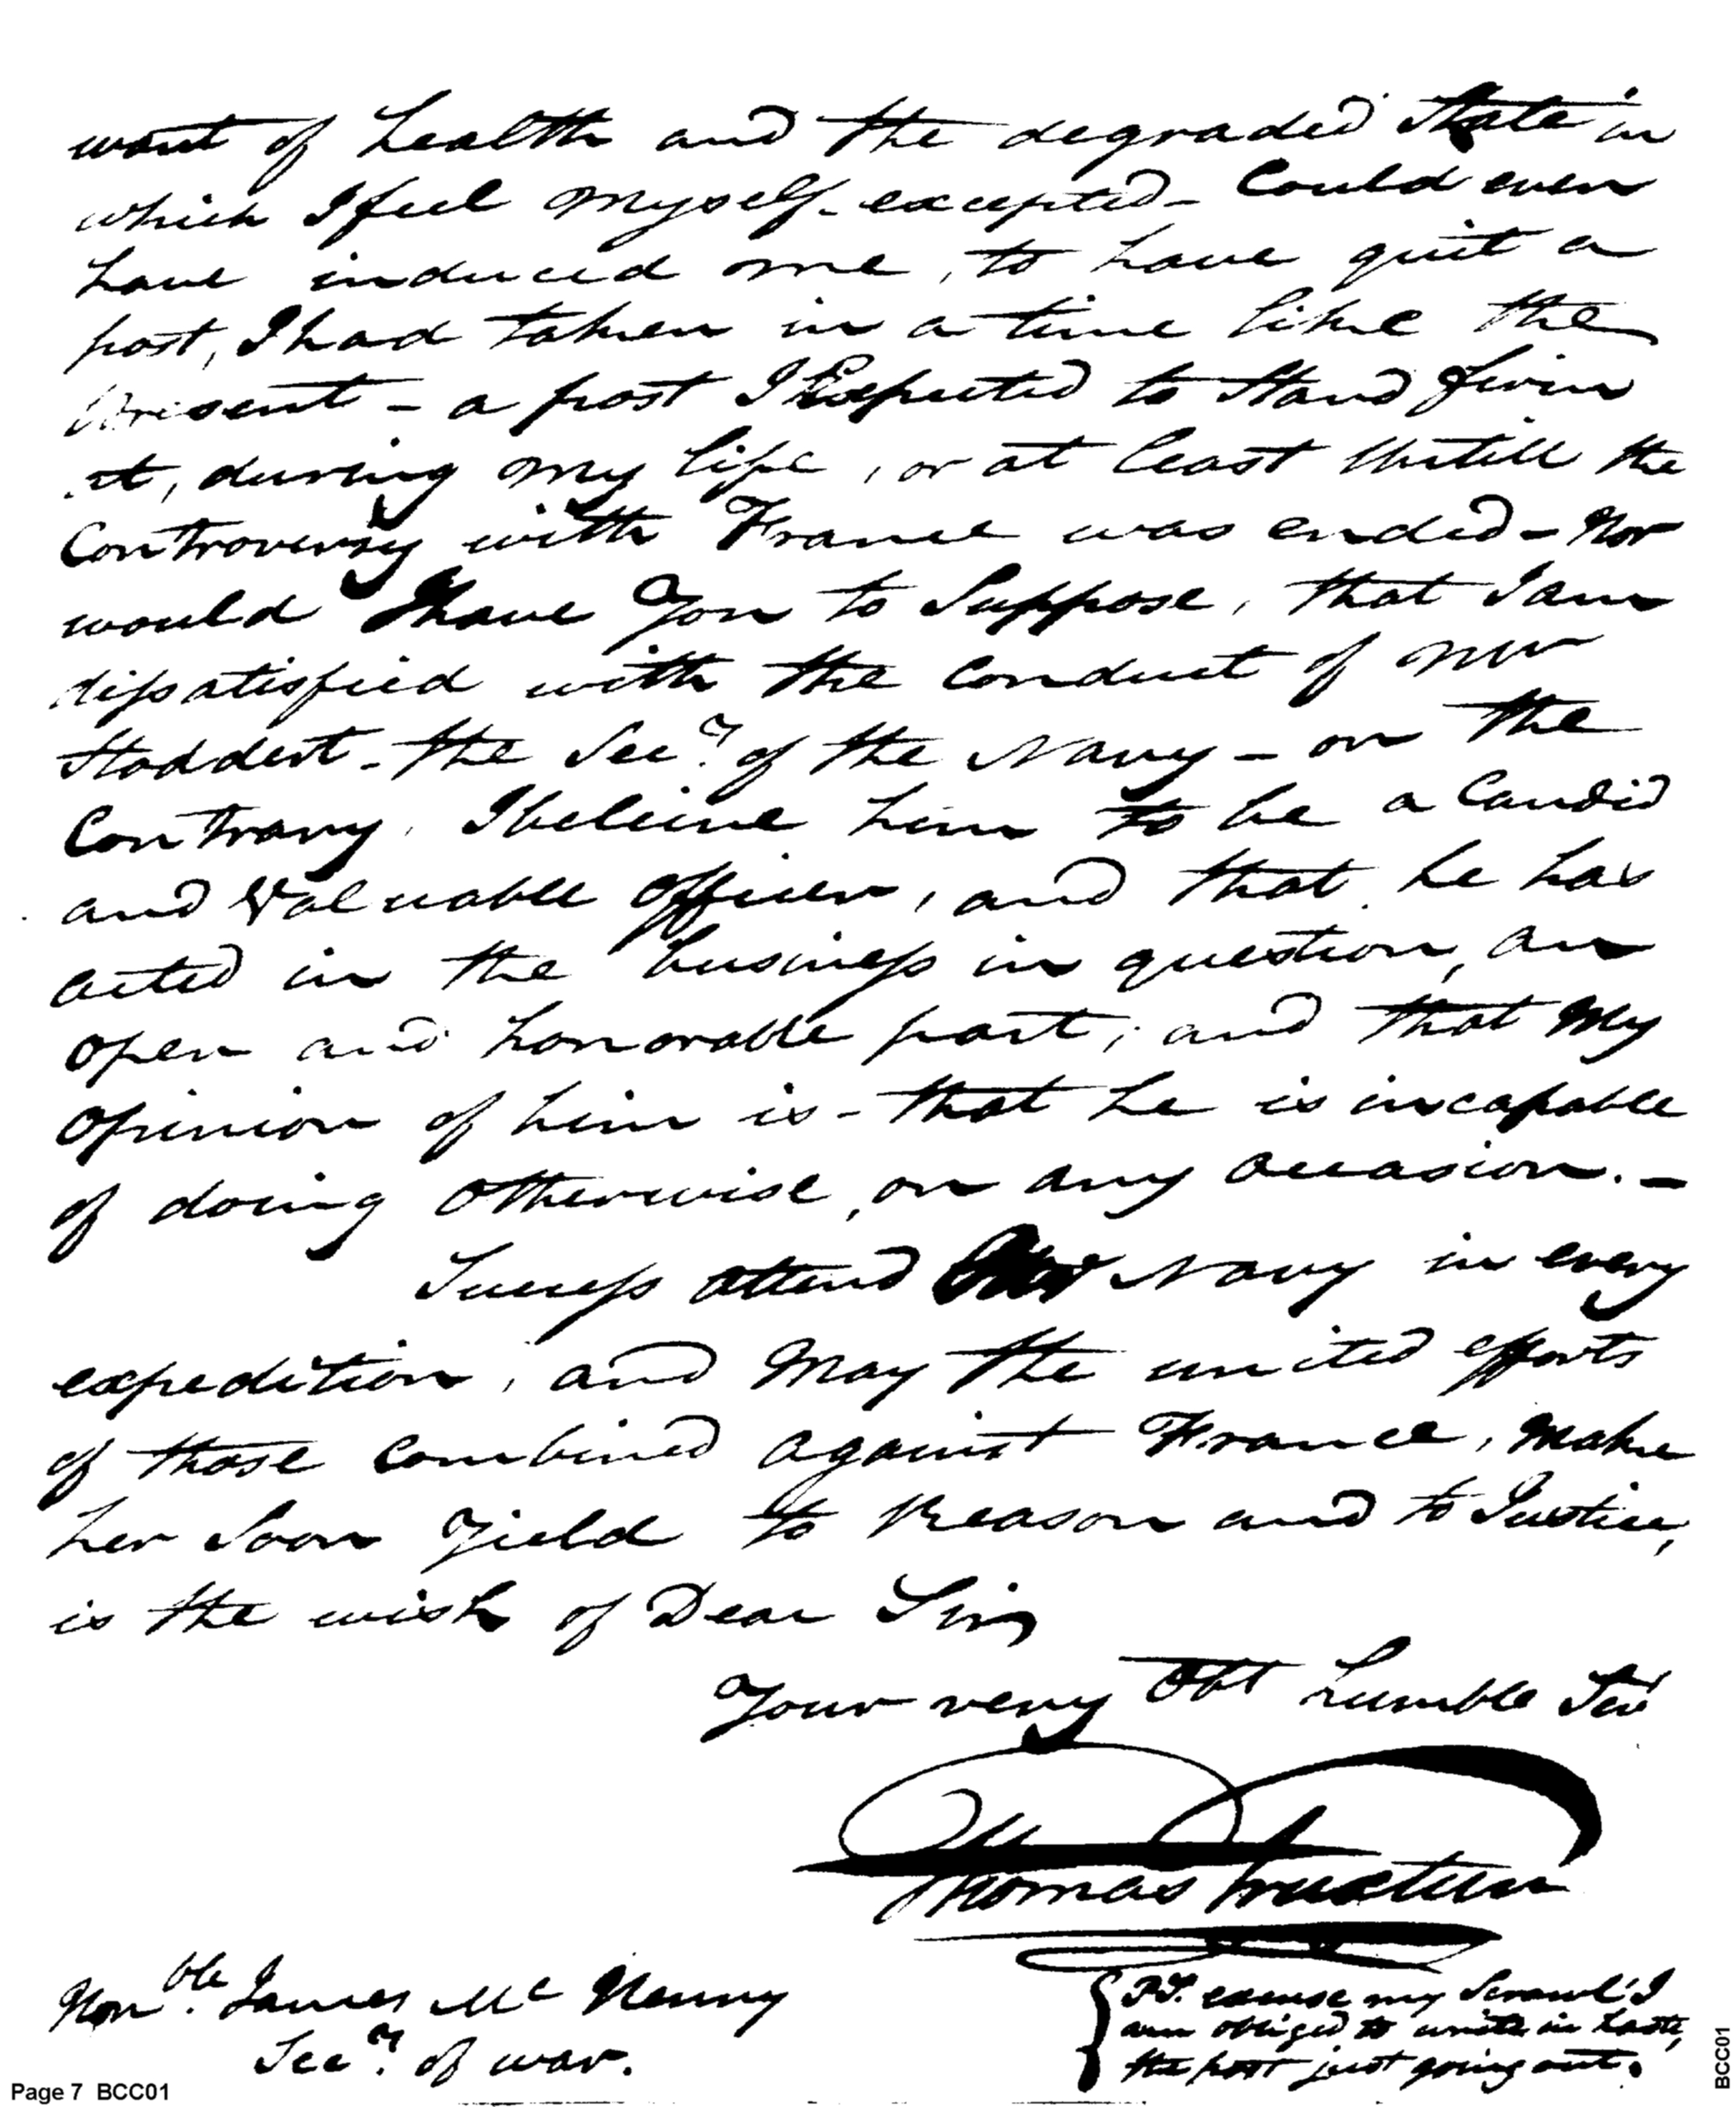 want of health and the degraded State in
which I feel myself - excepted - Could ever
have induced me, to have quit a
post, I had taken in a time like the
present - a post I Expected to Stand firm
at, during my life, or at least Untill the
Controversy with France was ended - Nor
would I have You to Suppose, that I am
dissatisfied with the Conduct of Mr
Stoddert - the Secy. of the Navy - on the
Contrary, I beleive him to be a Candid
and Valuable Officer, and that he has
acted in the business in question, an
open and honorable part; and that My
Opinion of him is - that he is incapable
of doing Otherwise, on any Occasion. -
Success attend Navy in every
expedition, and May the united efforts
of those Combined against France, Make
her Soon Yield to Reason and to Justice,
is the wish of Dear Sir,
Your very Obt humble Ser
Thomas Truxtun
Honble. James McHenry
Secy. of war.
excuse my Scrawl I
am obliged to write in haste,
the post just going out.
Page 7 BCC01
BCC01